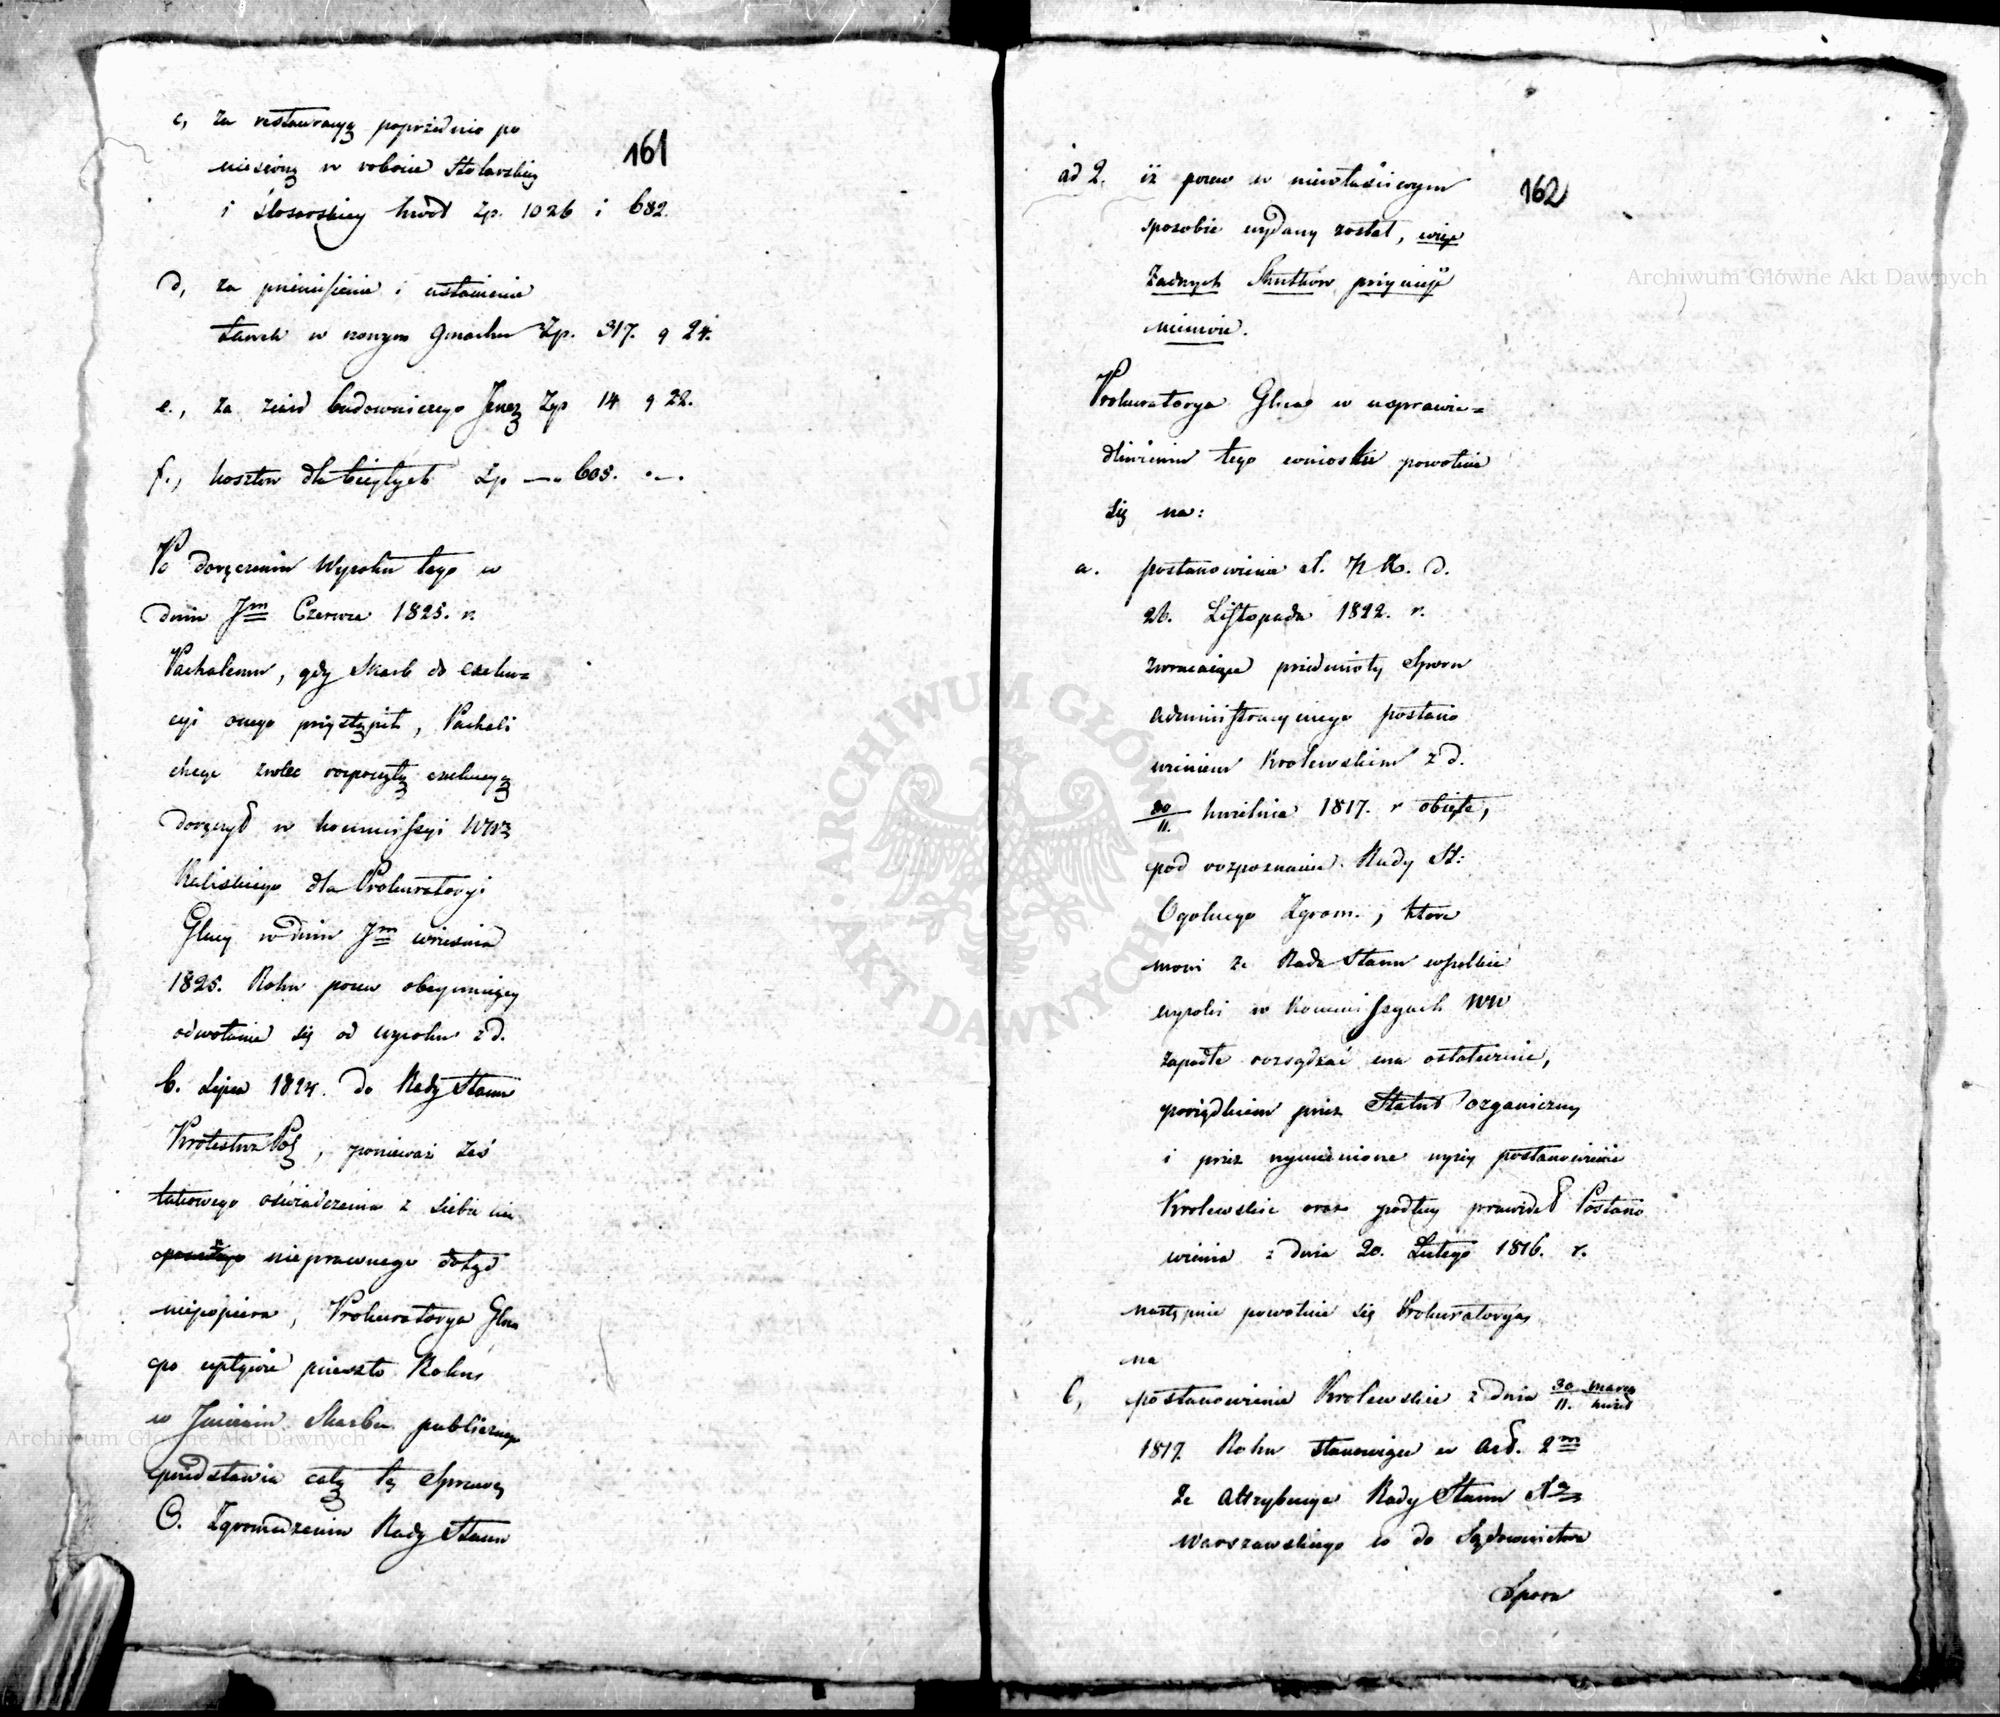 161
c, za restauracyą poprzednio po
niesioną w robocie Stolarskiey
i ślosarskiey kwot Zp. 1026 i 682.
d, za przeniesienie i ustawienie
ławek w nowym gmachu Zp. 317. g 24.
e., za zjazd budowniczego Zyp 14 g 22.
f., kosztów dla biegłych Zp 605.
Po doręczeniu Wyroku tego w
dniu Czerwca 1825. r.
Pachalemu, gdy Skarb do exeku=
cyi onego przystąpił, Pachali
chcąc rozpoczętą exekucyą
doręczył w kommissyi Wwa
Kaliskiego dla Prokuratoryi
Glney w dniu września
1825. Roku pozew obeymuiący
odwołanie się od wyroku z d.
6. Lipca 1824. do Rady Stanu
Królestwa Pol, ponieważ zaś
takowego oświadczenia z siebie
nieprawnego dotąd
niepopiera, Prokuratorya Glna
po upływie przeszło Roku
w Imieniu Skarbu publicznego
przedstawia całą tę Sprawę
O. Zgromadzeniu Rady Stanu
162
ad 2. iż pozew w niewłaściwym
sposobie wydany został, więc
żadnych Skutków
.
Prokuratorya Glna w usprawie=
dliwieniu tego wniosku powołuie
się na:
a. postanowienie d.
26. Listopada 1822. r.
zwracaiące przedmioty Sporu
administracyinego postano
wieniem Królewskim z d.
30/11. kwietnia 1817. r obięte,
pod rozpoznanie Rady St:
Ogólnego Zgrom., które
mówi że Rada Stanu wszelkie
wyroki w Kommissyach WW
zapadłe rozsądzać ma ostatecznie,
porządkiem przez Statut organiczny
i przez wymienione wyżey postanowienie
Królewskie oraz podług prawideł Postano
wienia z dnia 20. Lutego 1816. r.
następnie powołuie się Prokuratorya
na
b, postanowienie Królewskie z dnia 30/11. marca/kwiet
1817. Roku stanowiące w Art. 2m
że attrybucye Rady Stanu Xa
Warszawskiego co do Sądownictwa
Sporu
Archiwum Główne Akt Dawnych
Archiwum Główne Akt Dawnych
ARCHIWUM GŁÓWNE AKT DAWNYCH